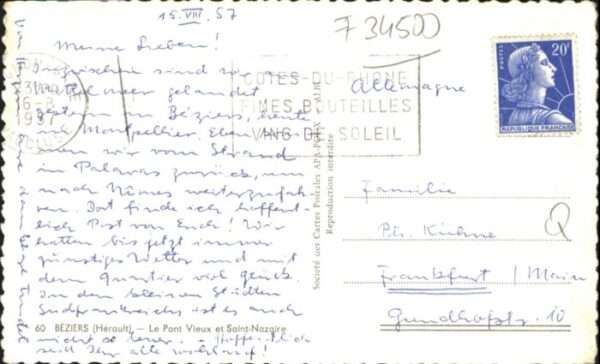 15.VIII.57
F 34500
Meine Lieben!
Inzwischen sind wir
am Mittelmeer gelandet
gestern in Béziers, heute
in Montpellier. Eben
wir vom Strand
in Palavas zurück, um
nach Nîmes weiterzufah-
ren. Dort finde ich hoffent-
lich Post von Euch! Wir
hatten bis jetzt immer
günstiges Wetter und mit
dem Quartier viel Glück.
In den kleinen Städten
Südfrankreichs ist es auch
nicht so teuer. Hoffentlich
seid Ihr alle wohlauf!
60 BÉZIERS (Hérault). — Le Pont Vieux et Saint-Nazaire
16-8
1957
COTES-DU-RHONE
FINES BOUTEILLES
VINS DE SOLEIL
Société des Cartes Postales APA-POUX - ALBI
Reproduction interdite
POSTES
20F
REPUBLIQUE FRANÇAISE
Allemagne
Familie
Ptr. Kühne
Frankfurt / Main
Grundhofstr. 10
Q